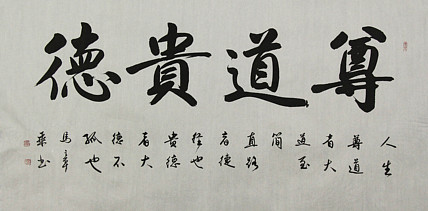 尊道貴德
人生
尊道
者大
道至
簡
直路
者德
也
貴德
者大
德不
孤也
馬章
乘书